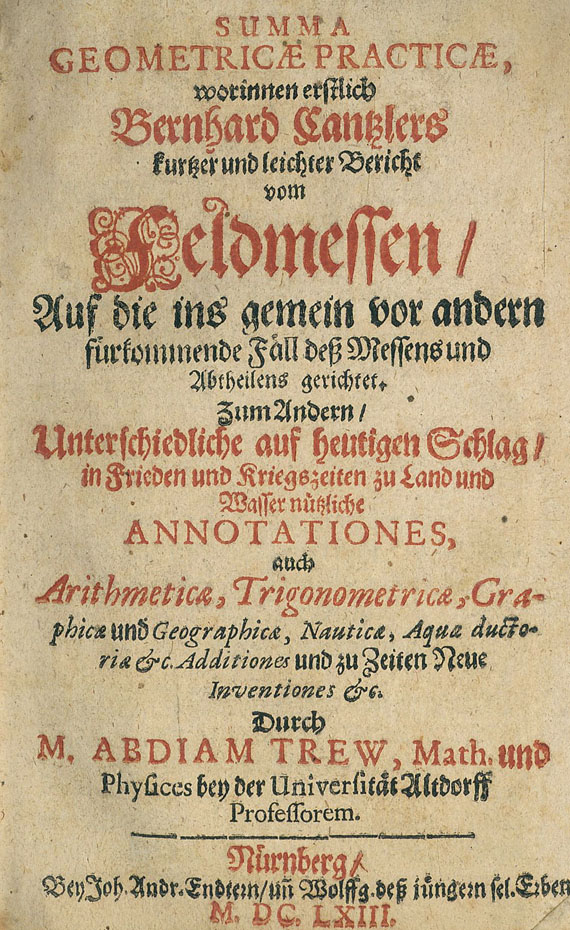 SUMMA
GEOMETRICÆ PRACTICÆ,
worinnen erstlich
Bernhard Cantzlers
kurtzer und leichter Bericht
vom
Feldmessen /
Auf die ins gemein vor andern
fürkommende Fäll deß Messens und
Abtheilens gerichtet.
Zum Andern /
Unterschiedliche auf heutigen Schlag /
in Frieden und Kriegszeiten zu Land und
Wasser nützliche
ANNOTATIONES,
auch
Arithmeticæ, Trigonometricæ, Gra-
phicæ und Geographicæ, Nauticæ, Aquæ ducto-
riæ &c. Additiones und zu Zeiten Neue
Inventiones &c.
Durch
M. ABDIAM TREW, Math. und
Physices bey der Universität Altdorff
Professorem.
Nürnberg /
Bey Joh. Andr. Endtern / uñ Wolffg. deß jüngern sel. Erben
M. DC. LXIII.